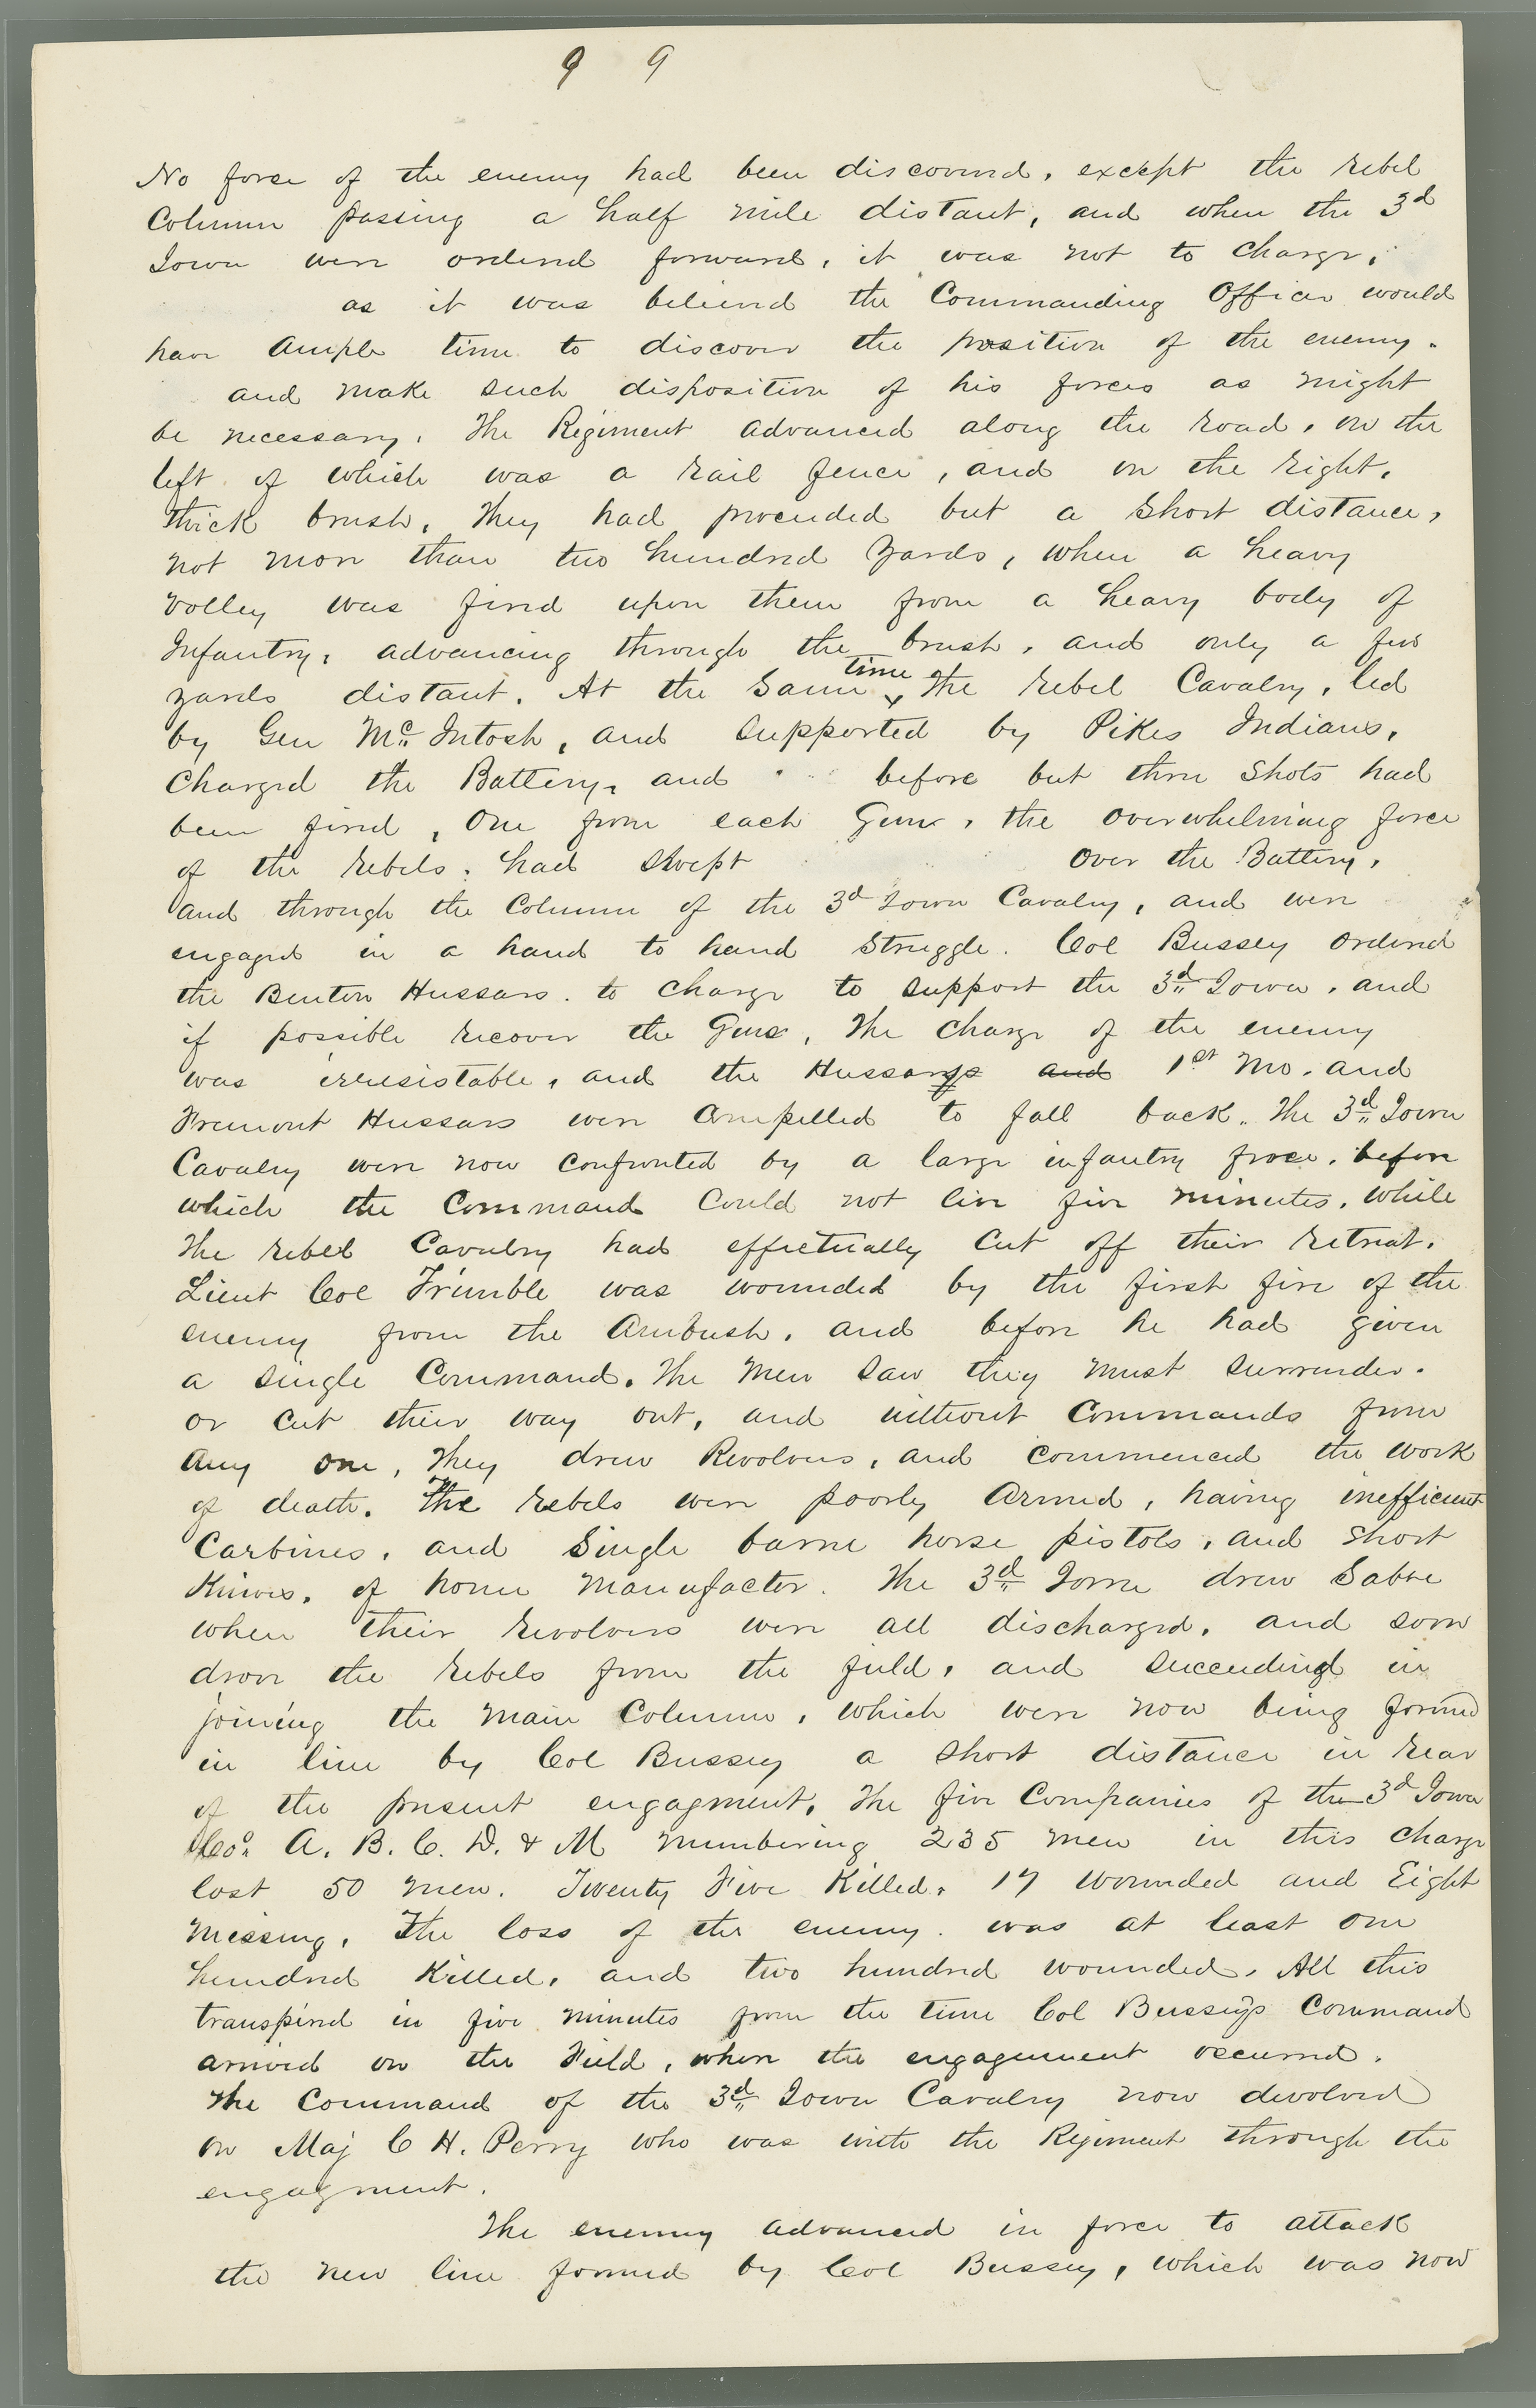 9 9
No force of the enemy had been discovered, except the rebel
Column passing a half mile distant, and when the 3d
Iowa were ordered forward, it was not to charge,
as it was believed the Commanding Officer would
have ample time to discover the position of the enemy.
and make such disposition of his forces as might
be necessary. The Regiment advanced along the road, on the
left of which was a rail fence, and on the right,
thick brush. They had proceeded but a short distance,
not more than two hundred yards, when a heavy
volley was fired upon them from a heavy body of
Infantry, advancing through the brush, and only a few
yards distant. At the same time the rebel Cavalry, led
by Gen Mc Intosh, and supported by Pikes Indians,
charged the Battery, and before but three shots had
been fired, one from each Gun, the overwhelming force
of the rebels, had swept over the Battery,
and through the Column of the 3d Iowa Cavalry, and were
engaged in a hand to hand struggle. Col Bussey ordered
the Benton Hussars. to charge to support the 3d Iowa, and
if possible recover the Guns, The charge of the enemy
was irresistable, and the Hussars and 1st Mo. and
Fremont Hussars were compelled to fall back. The 3d Iowa
Cavalry were now confronted by a large infantry force, before
which the Command could not live five minutes, while
the rebel Cavalry had effectually cut off their retreat.
Lieut Col Trimble was wounded by the first fire of the
enemy from the Ambush, and before he had given
a single Command. The men saw they must surrender.
or cut their way out, and without Commands from
any one, they drew Revolvers, and commenced the work
of death. The rebels were poorly armed, having inefficient
Carbines, and single barre horse pistols, and short
Knives, of home manufacter. The 3d Iowa drew Sabre
when their revolvers were all discharged, and soon
drove the rebels from the field, and succeeding in
joining the main Column, which were now being formed
in line by Col Bussey a short distance in rear
of the present engagment. The five Companies of the 3d Iowa
Co's A. B. C. D. & M numbering 235 men in this charge
lost 50 men. Twenty Five Killed, 17 wounded and Eight
missing. The loss of the enemy. was at least one
hundred Killed, and two hundred wounded. All this
transpired in five minutes from the time Col Bussey's Command
arrived on the Field, where the engagement occurred.
The Command of the 3d Iowa Cavalry now devolved
on Maj C H. Perry who was with the Regiment through the
engagment.
The enemy advanced in force to attack
the new line formed by Col Bussey, which was now